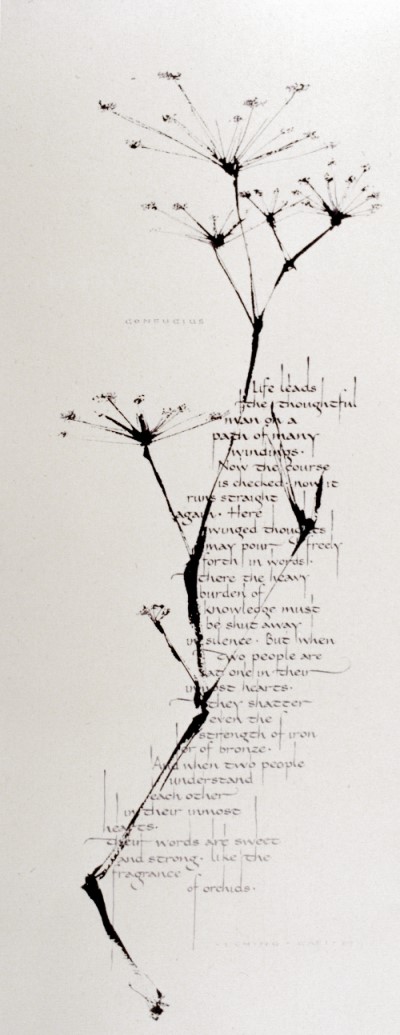 CONFUCIUS
Life leads
the thoughtful
man on a
path of many
windings.
Now the course
is checked, now it
runs straight
again. Here
winged thoughts
may pour freely
forth in words.
there the heavy
burden of
knowledge must
be shut away
in silence. But when
two people are
at one in their
inmost hearts.
they shatter
even the
strength of iron
or of bronze.
And when two people
understand
each other
in their inmost
hearts.
their words are sweet
and strong. like the
fragrance
of orchids.